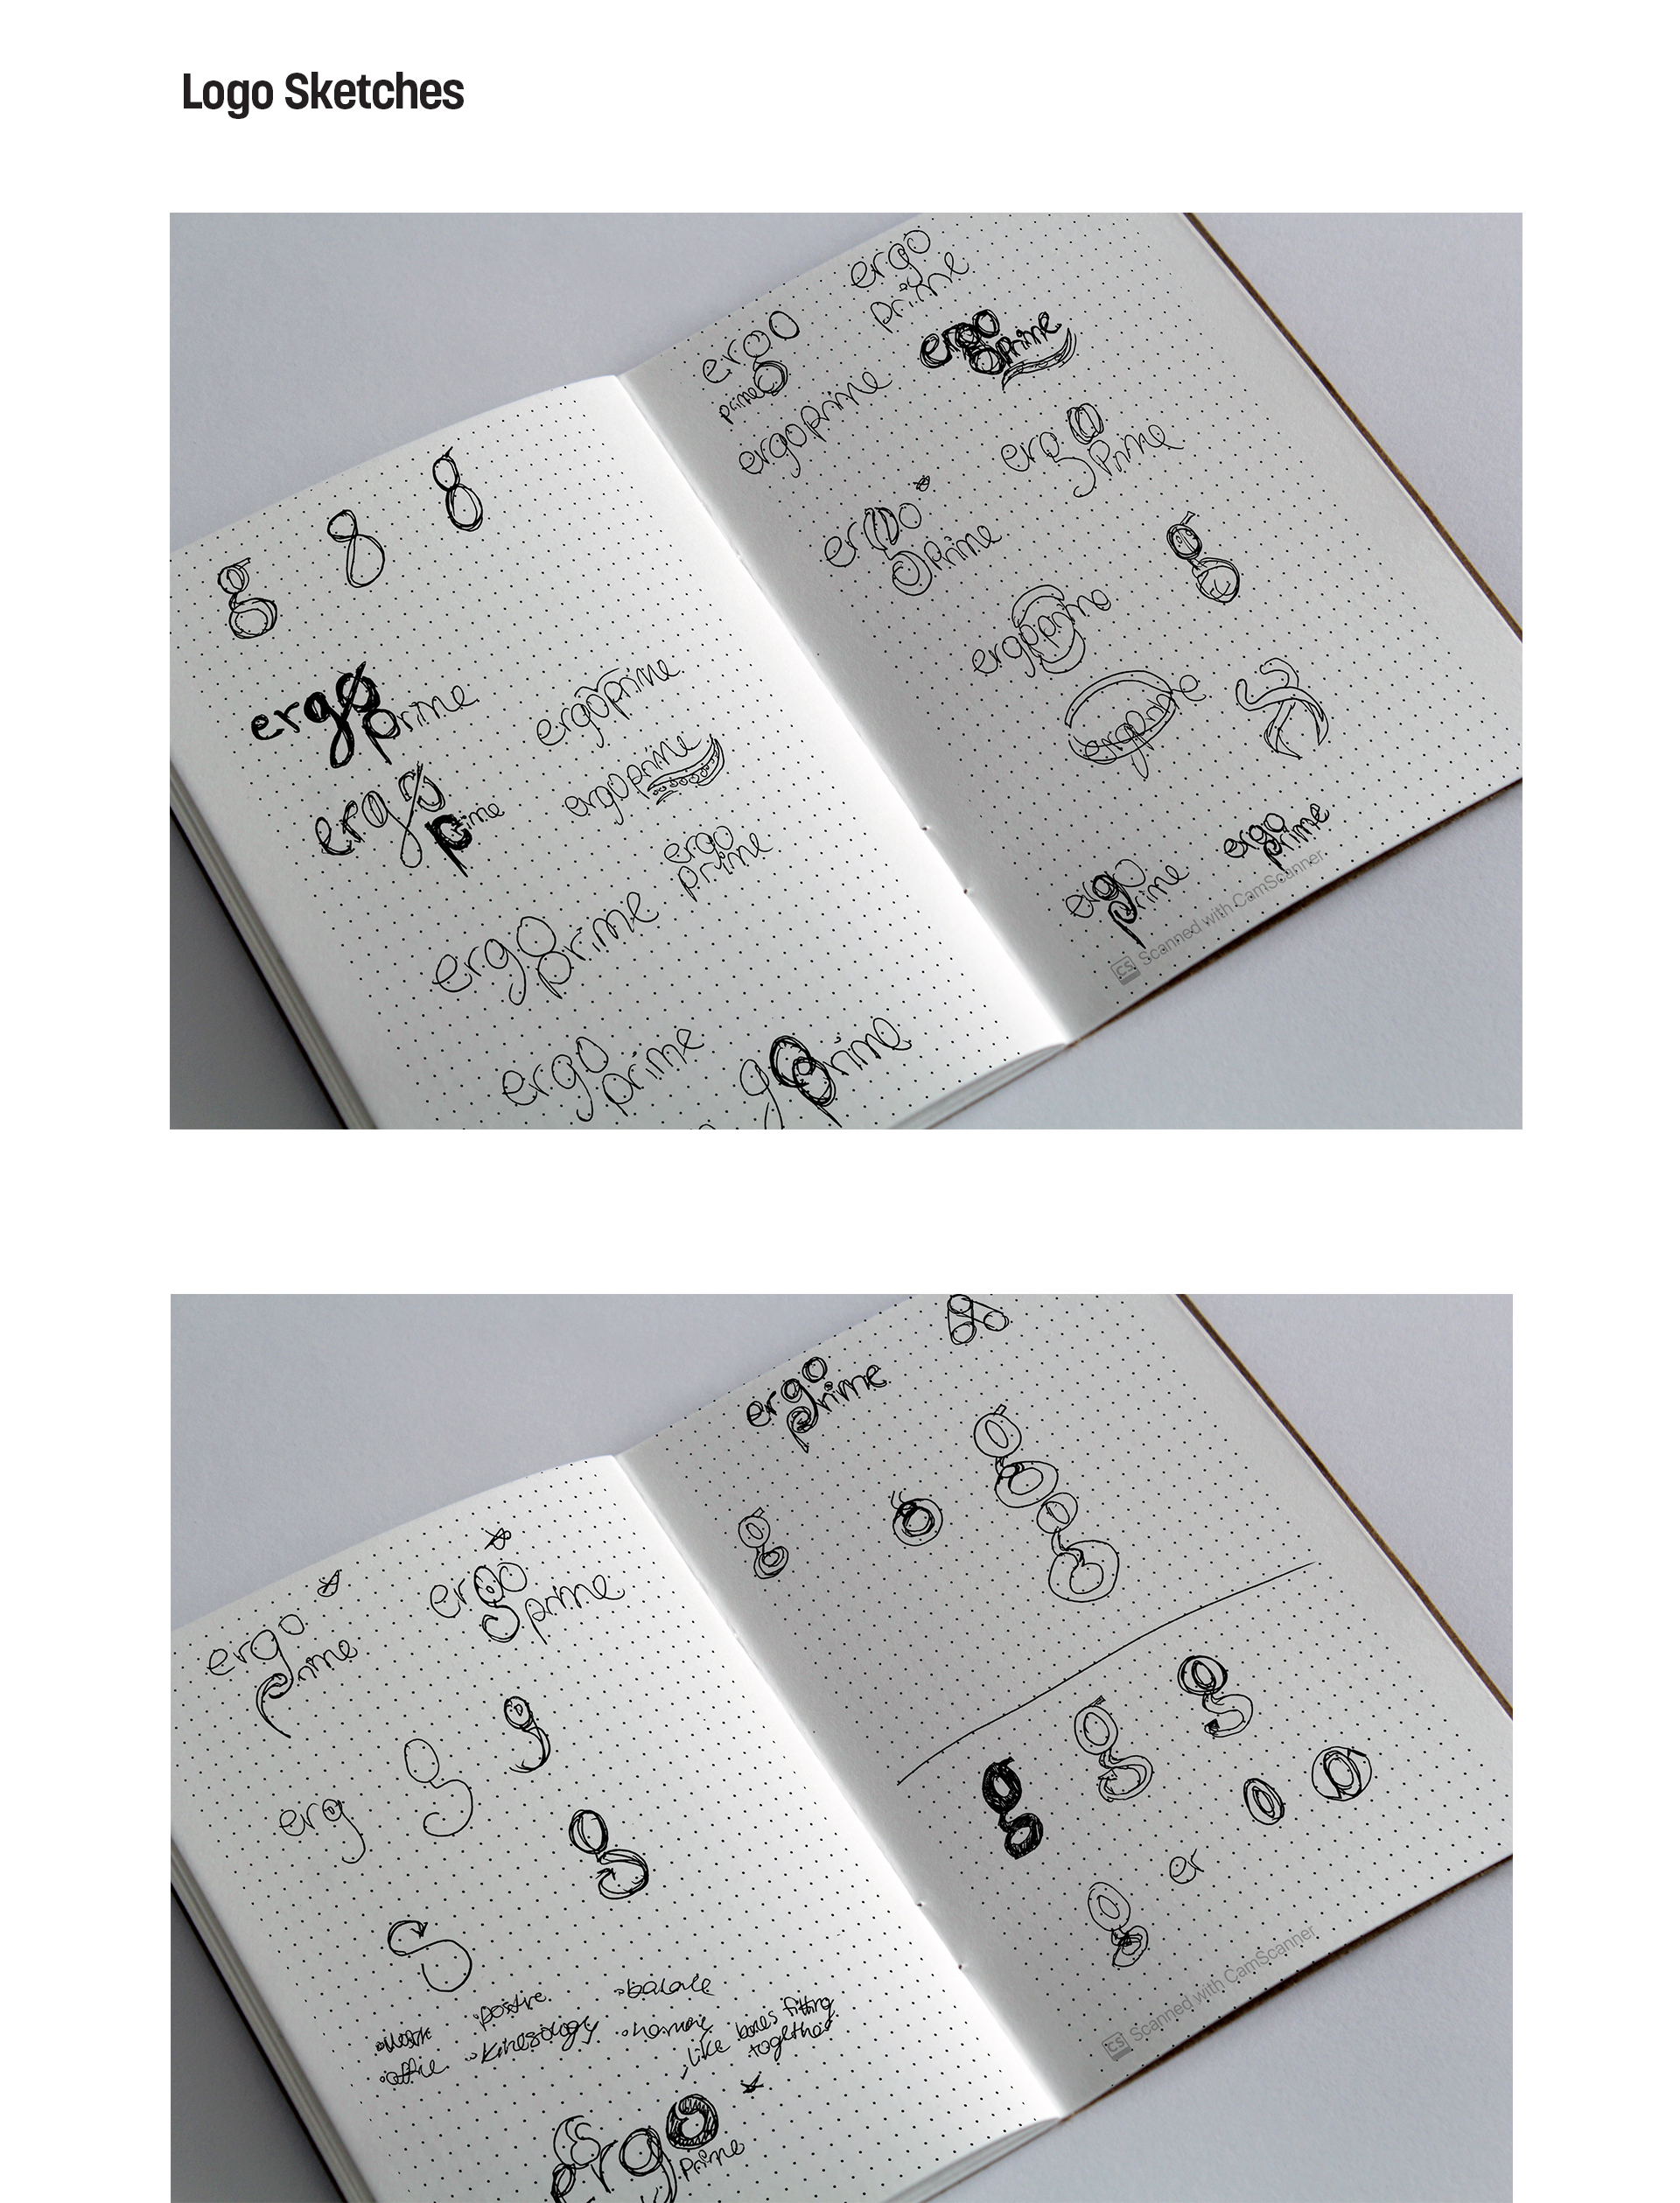 Logo Sketches
ergo
prime
ergo
prime
ergo
prime
ergoprime
erg
prime
ergo
prime
g
8
8
g
ergo
prime
ergoprime
ergoprime
ergo
prime
ergoprime
ergoprime
ergo
prime
ergo
prime
ergo
prime
ergo
prime
ergo
prime
go prime
CS Scanned with CamScanner
ergo
prime
g
g
g
ergo
prime
ergo
prime
g
g
erg
g
g
g
g
g
er
g
S
•balance
•Kinesology
like bones fitting
together
ergo
prime
CS Scanned with CamScanner